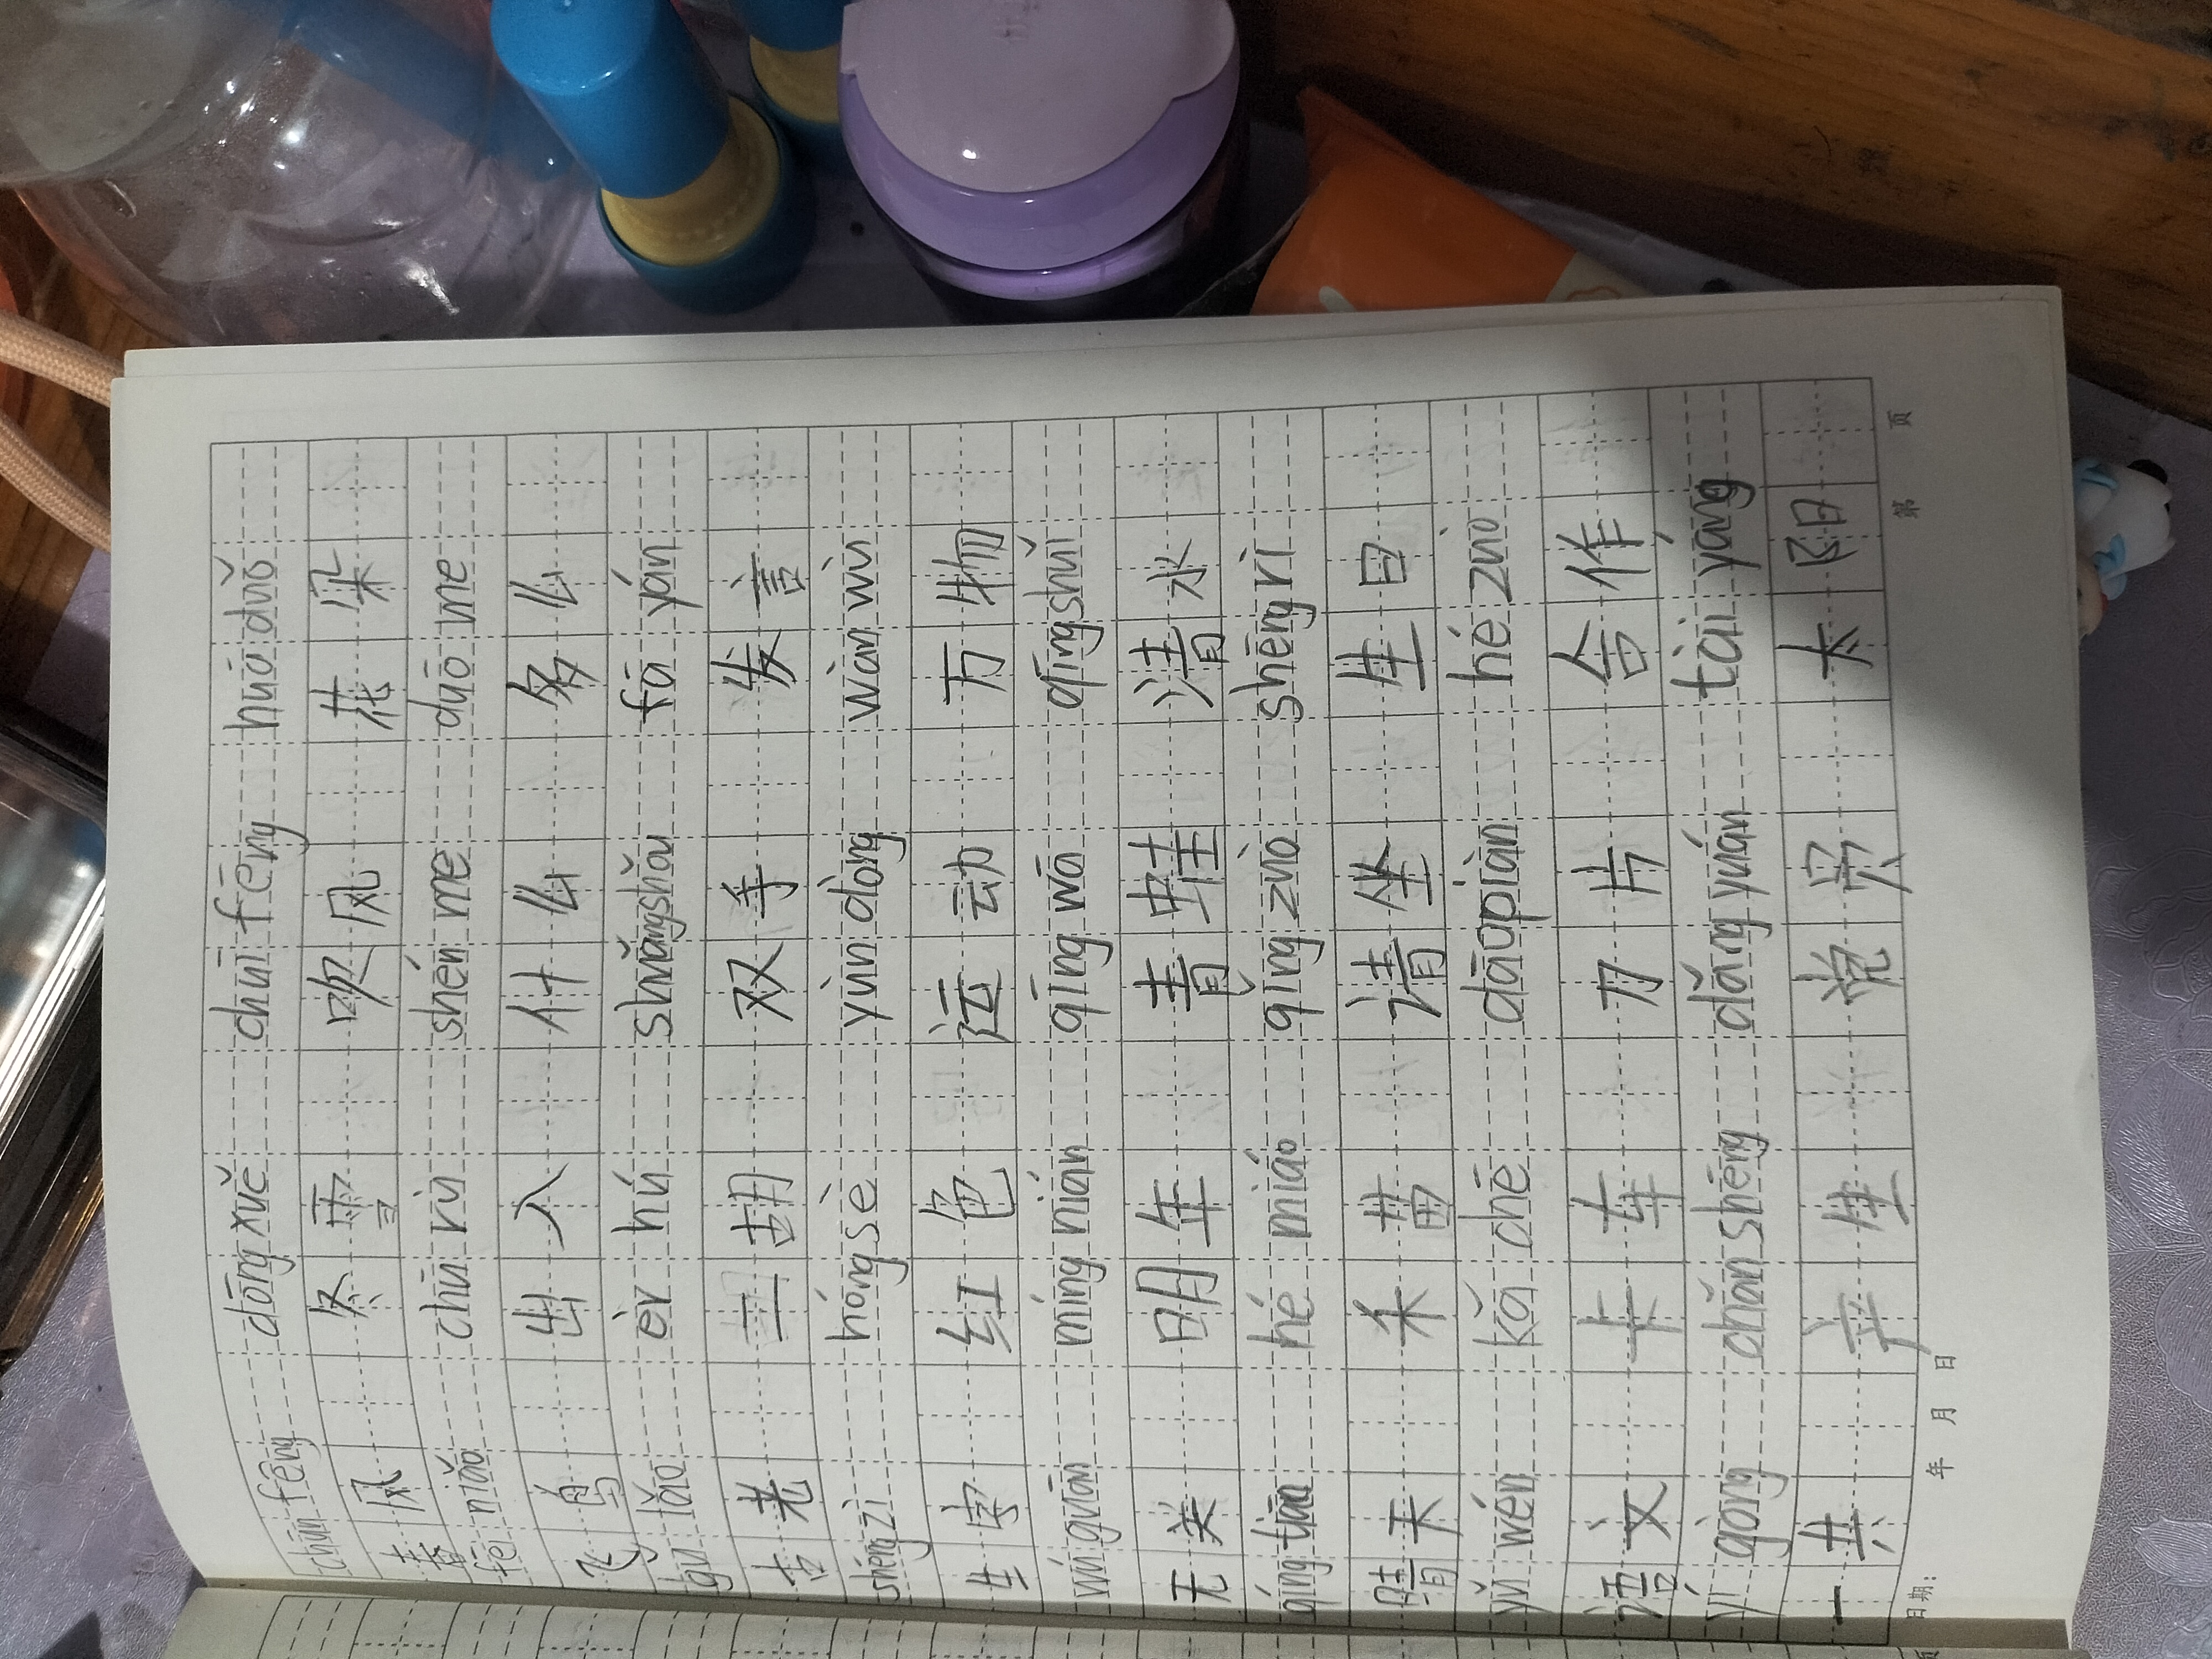 chūn fēng dōng xuě chuī fēng huā duǒ
春风 冬雪 吹风 花朵
fēi niǎo chū rù shén me duō me
飞鸟 出入 什么 多么
gǔ lǎo èr hú shuǎngshǒu fā yán
古老 二胡 双手 发言
shēng zì hóng sè yùn dòng wàn wù
生字 红色 运动 万物
wú guān míng nián qīng wā qīng shuǐ
无关 明年 青蛙 清水
qíng tiān hé miáo qǐng zuò shēng rì
晴天 禾苗 请坐 生日
yǔ wén kǎ chē dāo piàn hé zuò
语文 卡车 刀片 合作
yí gòng chǎn shēng dǎng yuán tài yáng
一共 产生 党 太阳
日期: 年 月 日 第 页